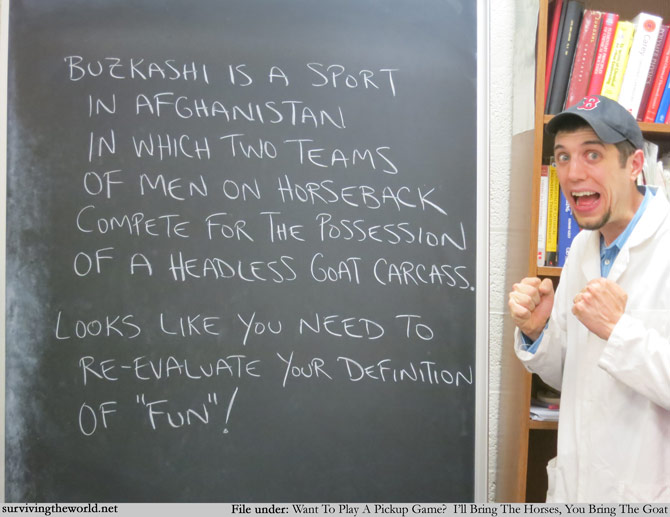 BUZKASHI IS A SPORT
IN AFGHANISTAN
IN WHICH TWO TEAMS
OF MEN ON HORSEBACK
COMPETE FOR THE POSSESSION
OF A HEADLESS GOAT CARCASS.
LOOKS LIKE YOU NEED TO
RE-EVALUATE YOUR DEFINITION
OF "FUN"!
B
survivingtheworld.net
File under: Want To Play A Pickup Game? I'll Bring The Horses, You Bring The Goat